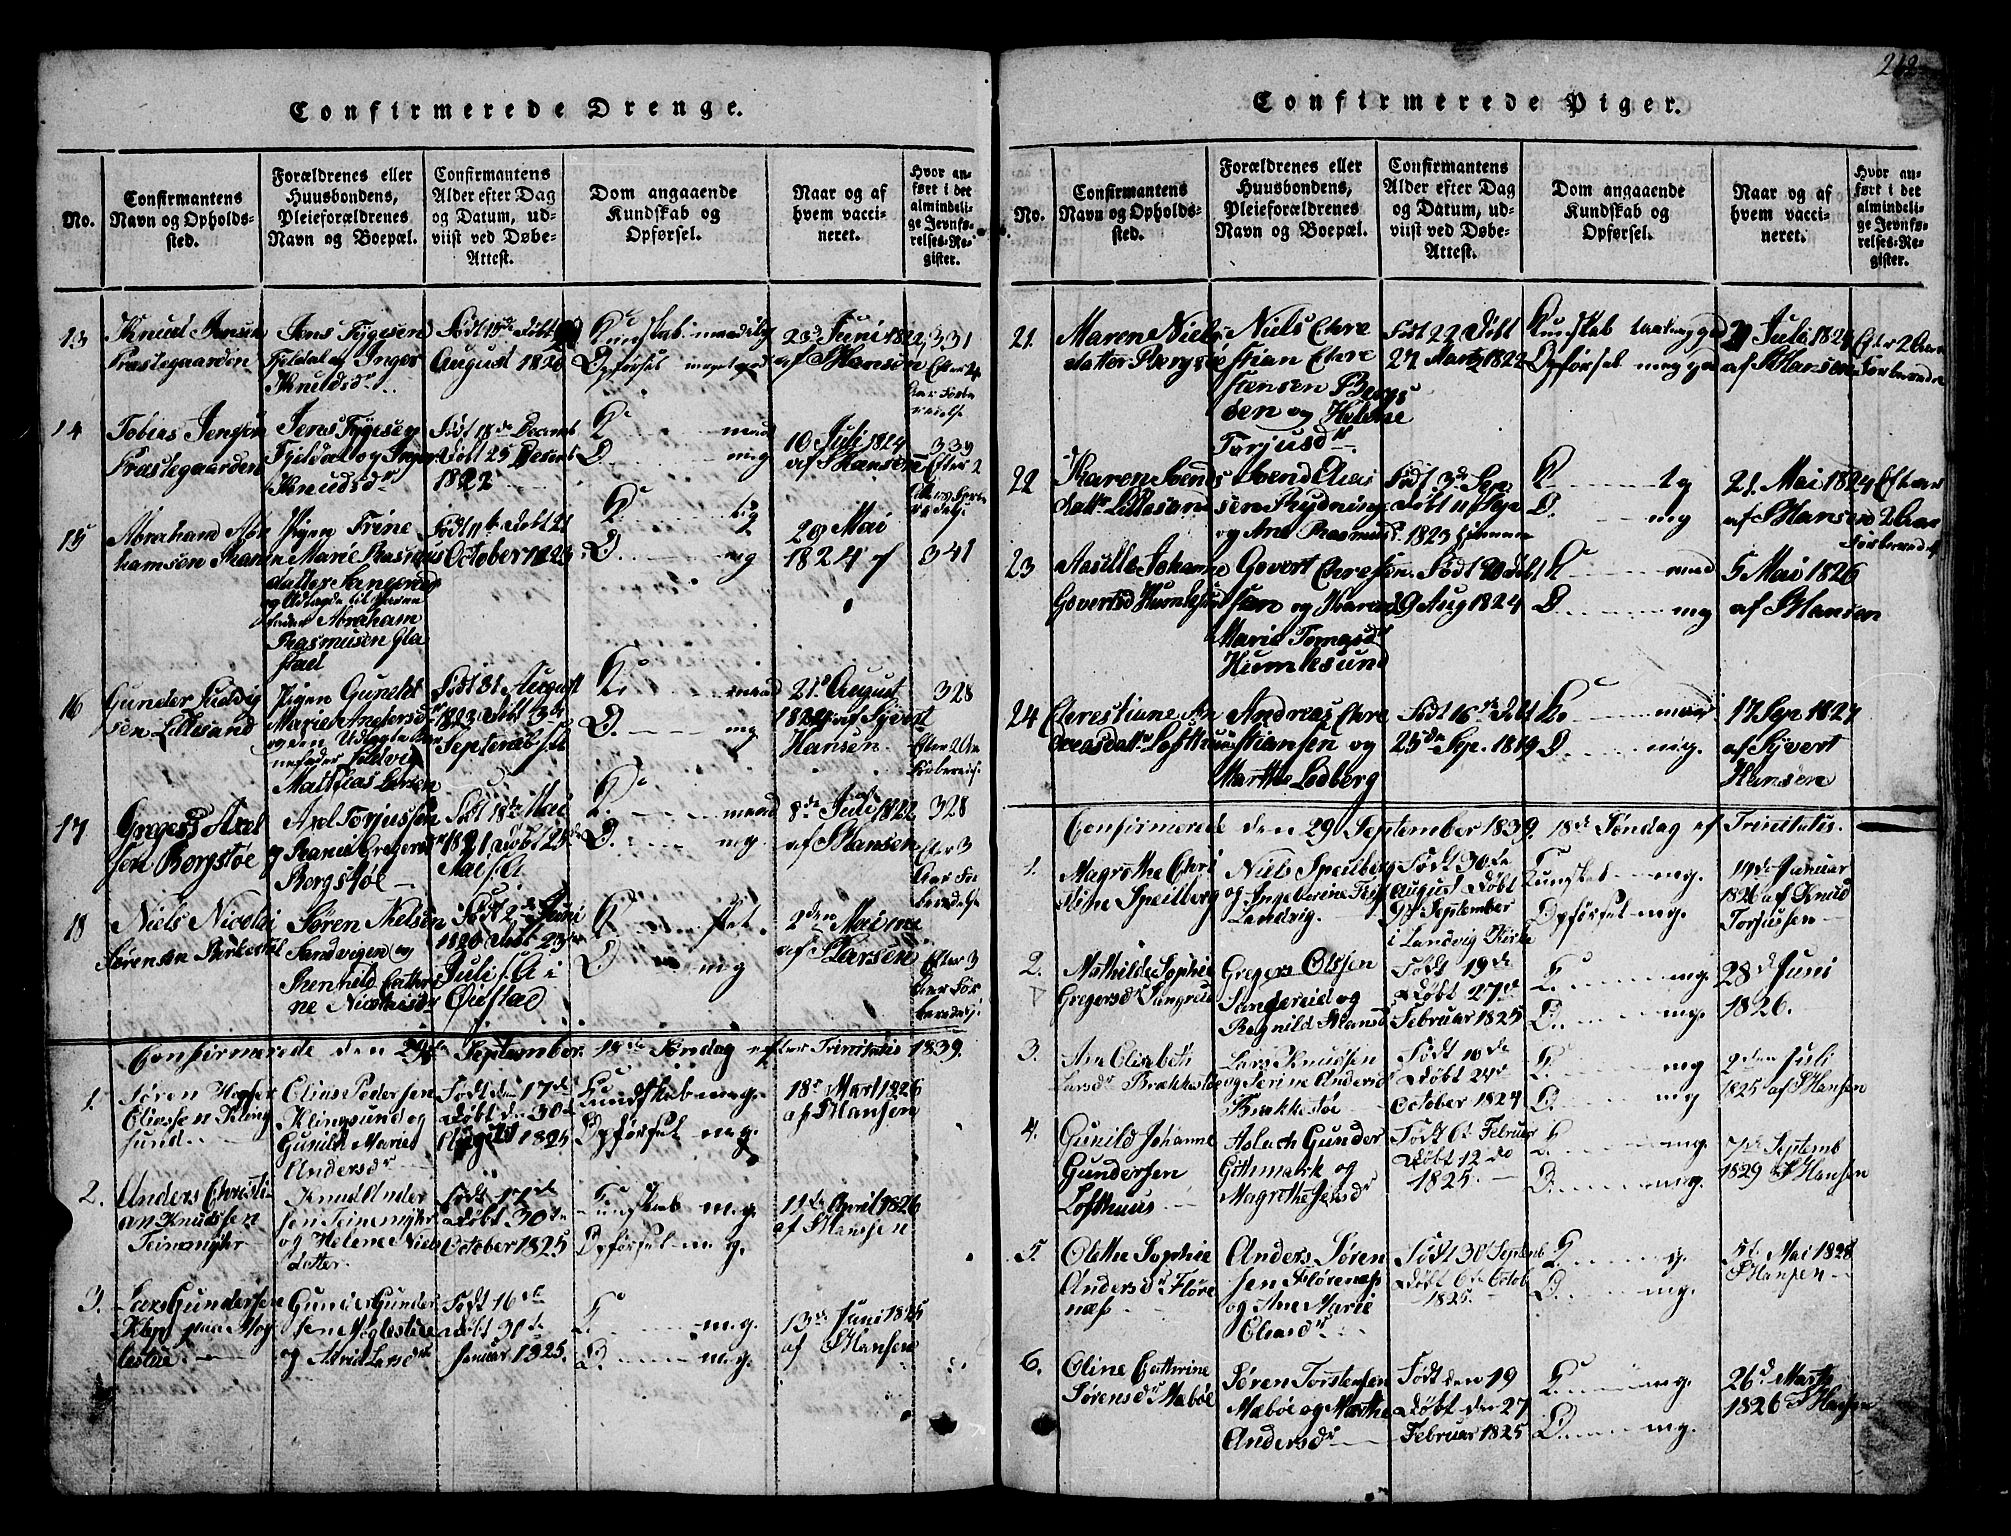 Confirmerede Drenge.
No.
Confirmantens
Navn og Opholds-
sted.
Forældrenes eller
Huusbondens,
Pleieforældrenes
Navn og Boepæl.
Confirmantens
Alder efter Dag
og Datum, ud-
viist ved Døbe-
Attest.
Dom angaaende
Kundskab og
Opførsel.
Naar og af
hvem vacci-
neret.
Hvor an-
ført i det
almindeli-
ge Jevnfø-
relses-Re-
gister.
13
Knud Jensen
Præstegaarden
Jens Tygesen
Fyldal og Inger
Knuldsdr.
Født 15de Døbt
August 1820
Kundskab maadelig
Opførsel meget god
23d Juni 1822
af SHansen
331
Efter 2
14
Tobias Jensen
Præstegaarden
Jens Tygesen
Fjeldal og Inger
Knudsdr
Født 18de Decemb
Døbt 25 Desemb
1822
K. maad
O. mg
10 Juli 1824
af SHansen
339
Efter 2
15
Abrahand Abra
hamsen
Pigen Trine
Marie Rasmus
datter
og Udlagde til Barne
fader Abraham
Rasmusen Gla
stad
Født 11te Døbt 21
October 1823
K. tg
O. mg
29 Mai
1824 af
341
16
Gunder Ludvig
sen Lillesand
Pigen Gunild
Marie Andersdr
og den Udlagte Bar
nefader Ludvig
Mathias Larsen
Født 31 August
1823 Døbt 3de
September s. A
K. maad
O. mg
21de August
1824 af Syvert
Hansen
328
Efter 2 Aar
Forbereds.
17
Gregers Axel
sen Borgstøe
Axel Torjussen
og Karen Gregersdr
Borgstøe
Født 18de Mai
1821 Døbt 25de
Mai s. A
K. maad
O. mg.
8de Juli 1822
af SHansen
328
Efter 3
Aar Fo
beredelse
18
Niels Nicolai
Sørensen
Søren Nielsen
Sandvigen og
Renhild Cathri
ne Nicolaisdr
Født 2den Juni
1820 Døbt 23de
Juli s. A i
Øiestad
K. slet.
O. mg
2den Mai
af SLarsen
Efter 3
Aar For
beredels.
Confirmerede den 29de September 18de Søndag efter Trinitatis 1839.
1.
Søren
Eliassen Kling
sund.
Elias Pedersen
Klingsund og
Gunild Marie
Andersdr
Født den 17de
Døbt den 30te
1825
Kundskab meg.
Opførsel meg.
18de Mart 1826
af SHansen
2.
Anders Christi
an Knudsen
Teinemyhr
Knud Ander
sen Teinemyhr
og Helene Niels
datter
Født 17de
Døbt 30te
October 1825
Kundskab meg.
Opførsel meg.
11te April 1826
af SHansen
3.
Lars Gundersen
Klep paa Mog
lestue
Gunder Gunder
sen Møglestue
og Astrid Larsdr
Født 16de
Døbt 30te
Januar 1825.
K. meg.
O. meg.
13de Juni 1825
af SHansen
212
Confirmerede Piger.
No.
Confirmantens
Navn og Opholds-
sted.
Forældrenes eller
Huusbondens,
Pleieforældrenes
Navn og Boepæl.
Confirmantens
Alder efter Dag
og Datum, ud-
viist ved Døbe-
Attest.
Dom angaaende
Kundskab og
Opførsel.
Naar og af
hvem vacci-
neret.
Hvor an-
ført i det
almindeli-
ge Jevnfø-
relses-Re-
gister.
21.
Maren Niels
datter Bergsøe
Niels Chre
stian Chre
stensen Bergs
øen og Helene
Torjusdr
Født 22 Døbt
27 Martz 1822
Kundskab
Opførsel meg god
Juli 1824
af SHansen
Efter 2 Aar
Forberedel
22
Karen Svends
datr Lillesand
Svend Elias
sen Rydning
og Ane Rasmusdr.
Født 3de Sep
Døbt 11 Sep
1823
K. tg
O. mg
21. Mai 1824
af SHansen
Efter
2 Aar
Forberedels
23
Aasille Johanne
Govertsd Humlesund
Govert Chresten
sen og Karen
Marie Tomasdr
Humlesund
Født 20 Døbt
29 Aug 1824
K. maad
O. mg
5 Mai 1826
af SHansen
24
Chrestiane An
dreasdatr Lofthuus
Andreas Chre
stiansen og
Marthe Lodberg
Født 16de Døbt
25de Sep. 1819
K. maad
O. mg.
17 Sep 1827
af Syvert
Hansen
Confirmerede den 29 September 1839. 18de Søndag ef Trinitatis.
1.
Magrethe Chri
stine Speilberg
Niels Speilberg
og Ingeborine
Landvig.
Født 30te
August Døbt
9de September
i Landvig Kirke
Kundskab mg.
Opførsel mg.
19de Januar
1826 af Knud
Torjussen
2.
Mathilde Sophie
Gregersdr Sangreid
Gregers Olssen
Sangereid og
Ragnild Hansd
Født 19de
Døbt 27de
Februar 1825
K. mg.
O. mg.
28d Juni
1826.
3.
Ane Elisabeth
Larsdr Brækkestøe
Lars Knudsen
og Serine Andersd
Brækkestøe
Født 10de
Døbt 24de
October 1824
K. mg
O. mg
2den Juli
1825 af SHansen
4.
Gunild Johanne
Gundersen
Lofthuus
Aslach Gunder
Gothmark og
Magrethe Jensdr
Født 6te Februar
Døbt 12 do
1825.
K. mg.
O. mg.
7de Septemb
1829 SHansen
5.
Olethe Sophie
Andersdr Fløre
næs
Anders Søren
sen Florenæs
og Ane Marie
Olsdr
Født 30 Septemb
Døbt 6te Octob
1825.
K. mg.
O. mg.
5te Mai 1828
SHansen
6.
Oline Cathrine
Sørensdr Mæbøe
Søren Torstensen
Mæbøe og Marthe
Andersdr
Født den 19
Døbt den 27
Februar 1825
K. mg.
O. mg.
26d Marts
1826 SHansen